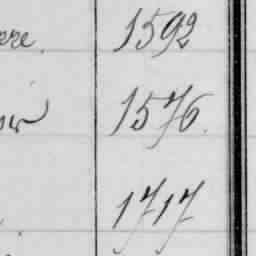 ere. 1592
ow 1576.
1717